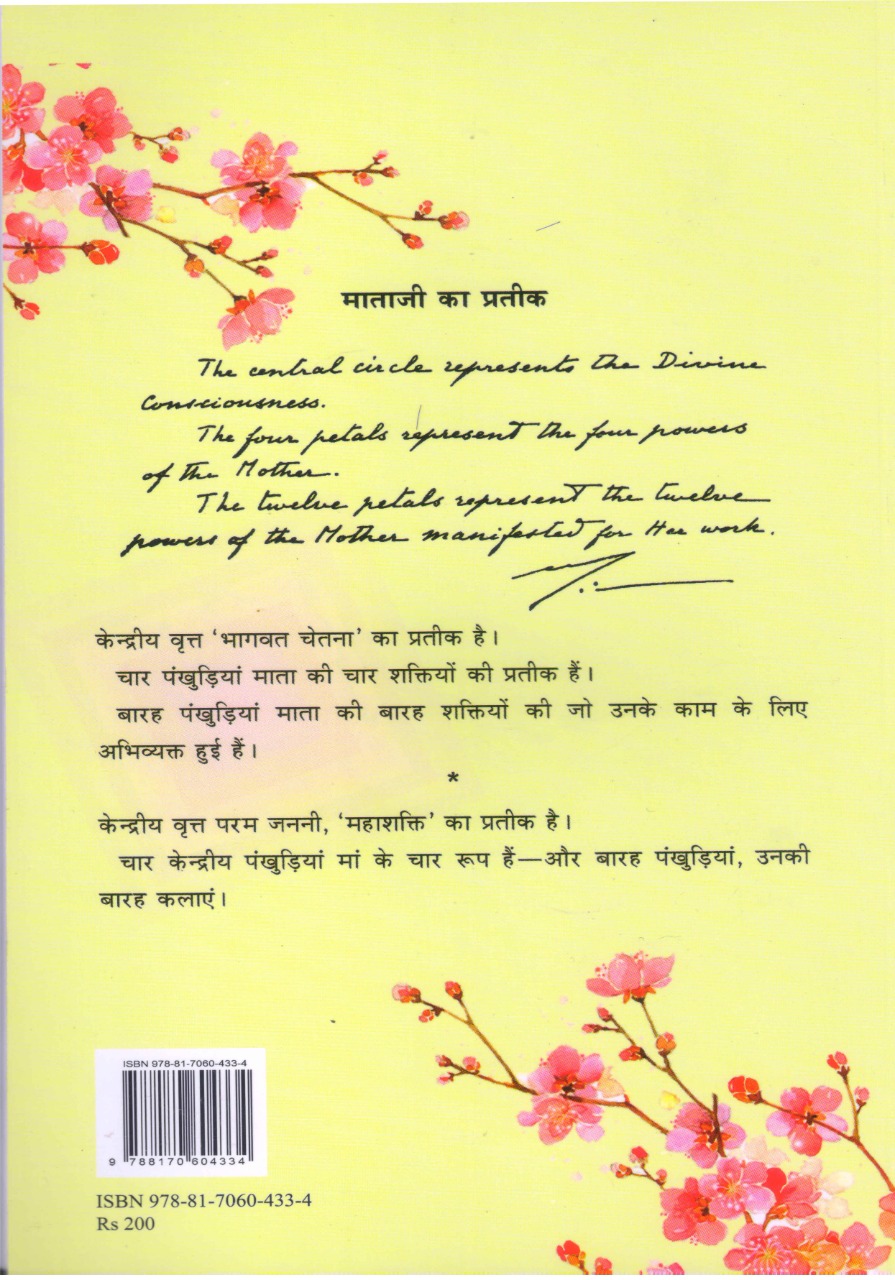 माताजी का प्रतीक
The central circle represents the Divine
Consciousness.
The four petals represent the four powers
of the Mother.
The twelve petals represent the twelve
powers of the Mother manifested for Her work.
केन्द्रीय वृत्त ‘भागवत चेतना’ का प्रतीक है।
चार पंखुड़ियां माता की चार शक्तियों की प्रतीक हैं।
बारह पंखुड़ियां माता की बारह शक्तियों की जो उनके काम के लिए
अभिव्यक्त हुई हैं।
*
केन्द्रीय वृत्त परम जननी, ‘महाशक्ति’ का प्रतीक है।
चार केन्द्रीय पंखुड़ियां मां के चार रूप हैं—और बारह पंखुड़ियां, उनकी
बारह कलाएं।
ISBN 978-81-7060-433-4
9 788170 604334
ISBN 978-81-7060-433-4
Rs 200